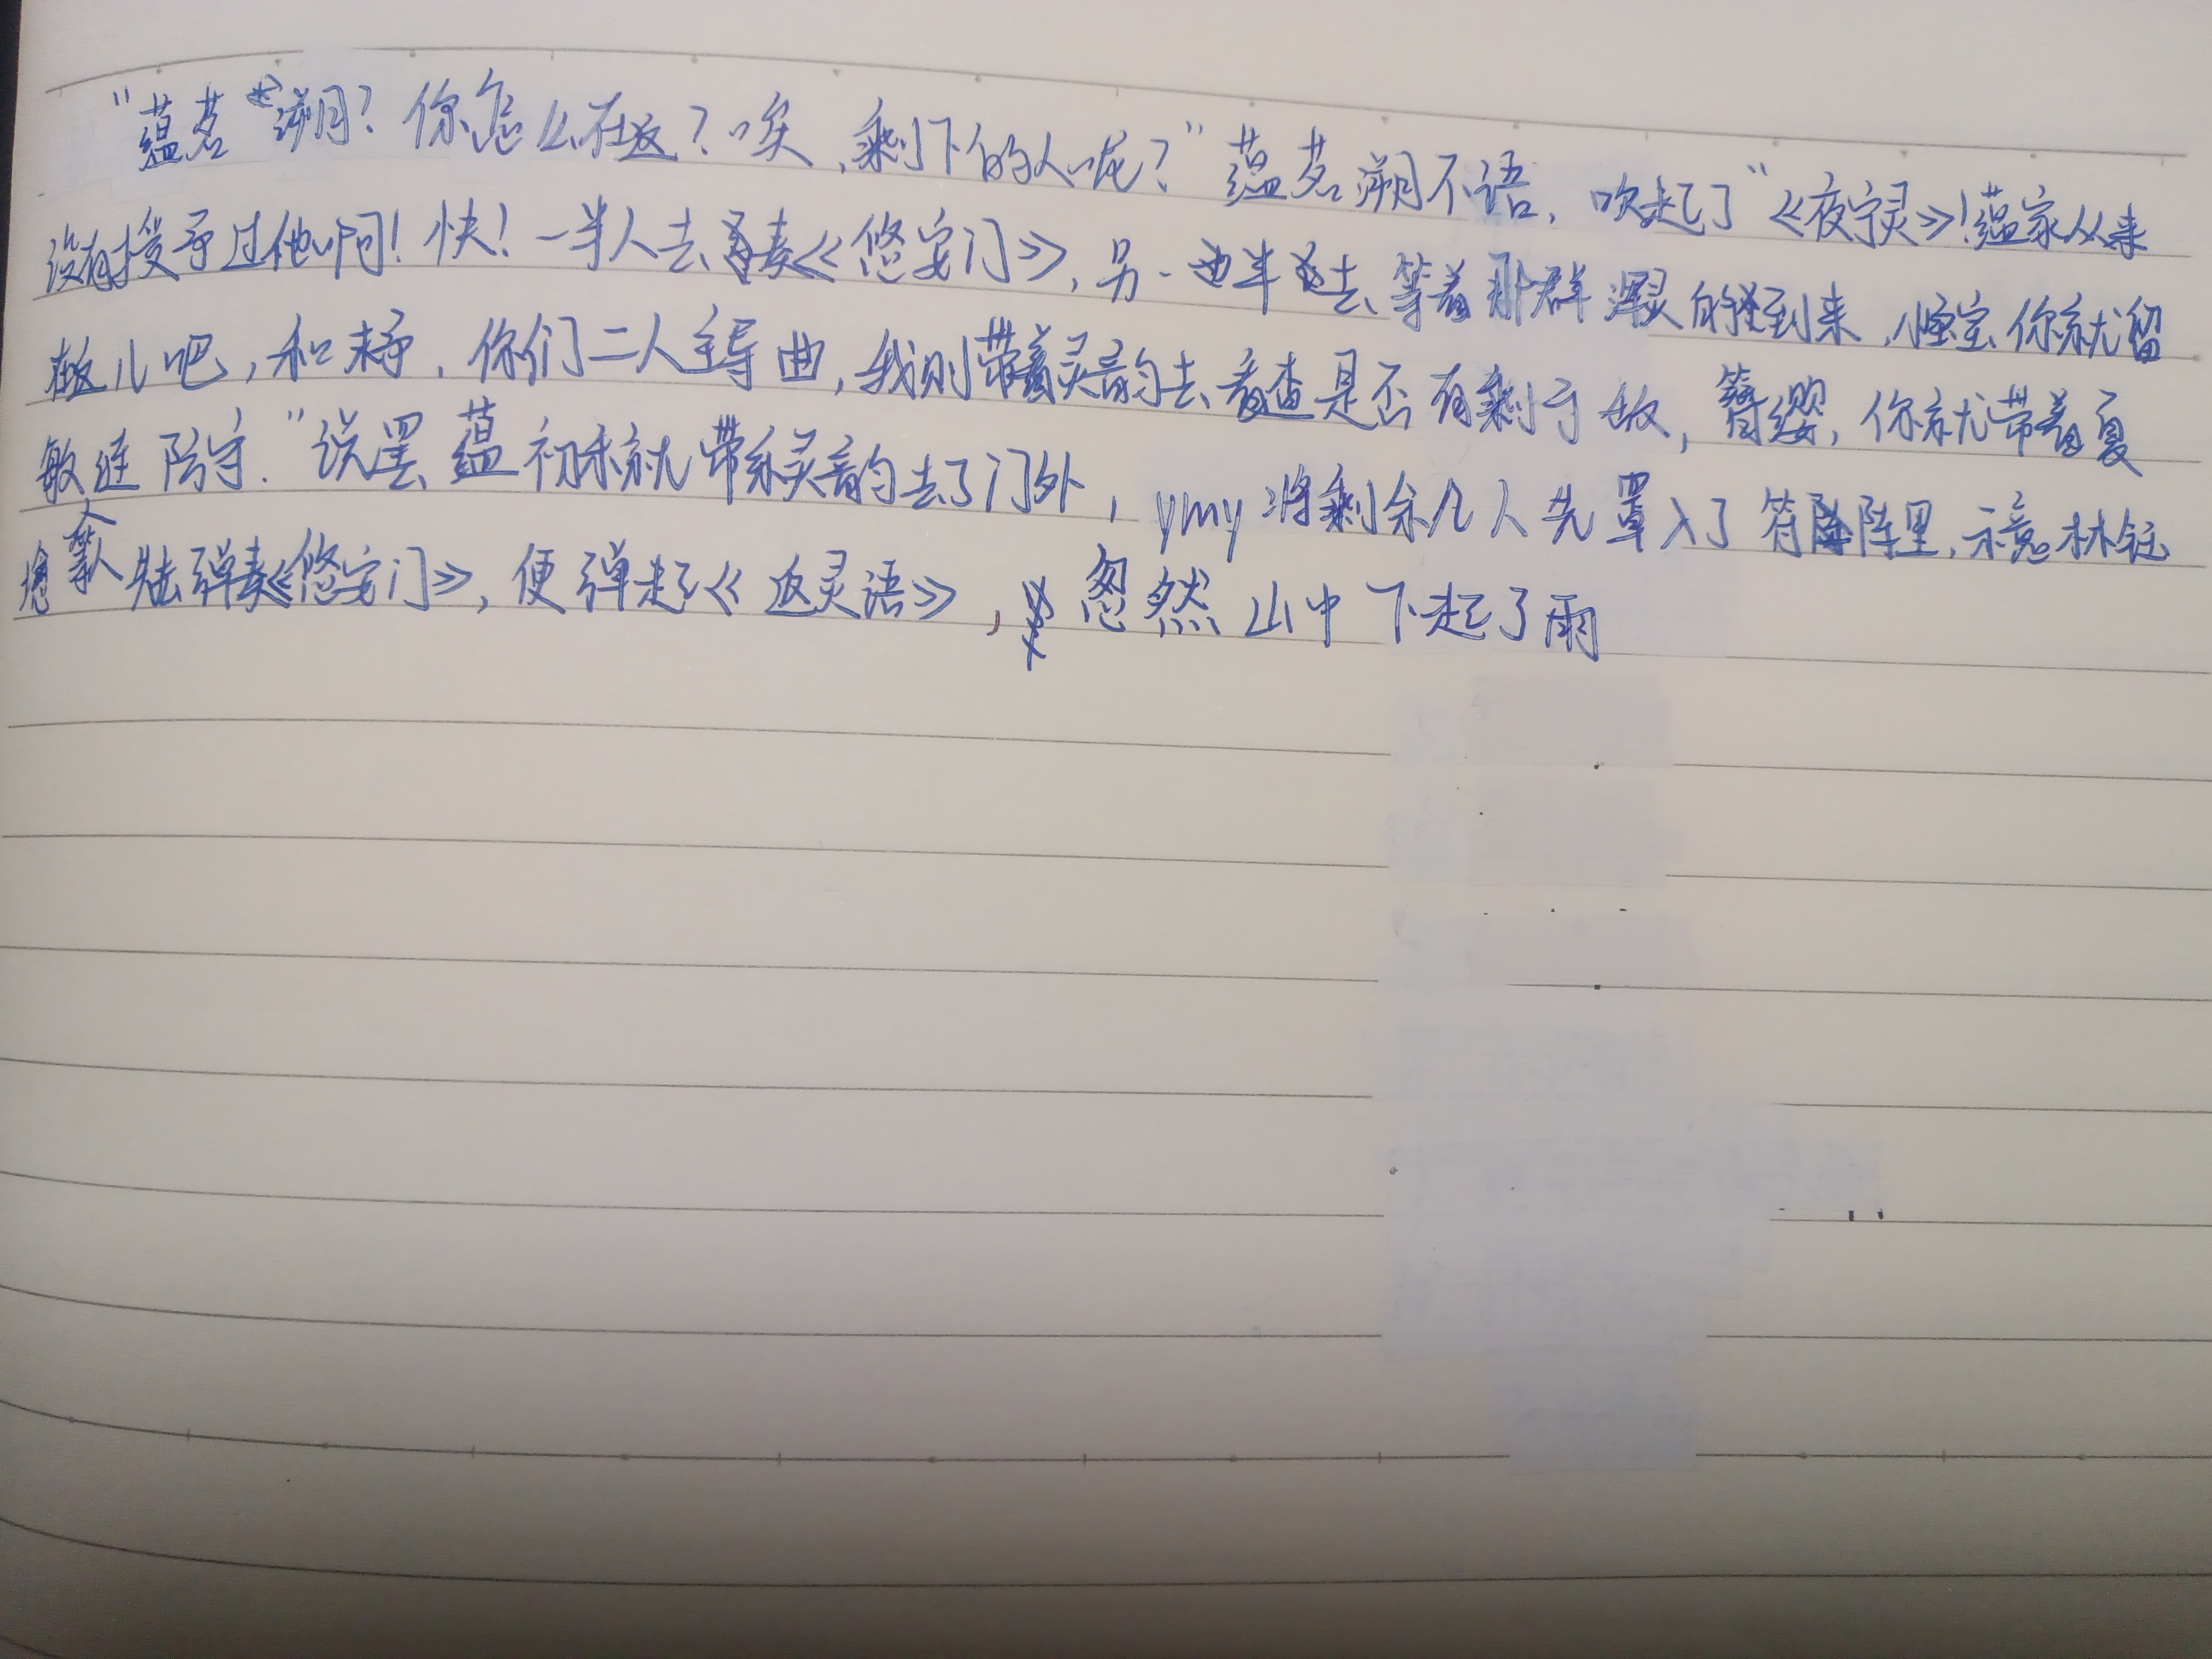 "蕴茗溯？你怎么在这？唉，剩下的人呢？"蕴茗溯不语，吹起了"《夜宁灵》！蕴家从来
没有授予过他啊！快！一半人去奏《悠安门》，另一半去等着那群灵的到来，你就留
在这儿吧，和，你们二人主导曲，我则带着灵韵去看查是否有剩于敌，簪缨，你就带着夏
敏莲防守."说罢蕴初禾就带和灵韵去了门外，ymy将剩余几人先罩入了符阵里，示意林钰
等人先去弹奏《悠安门》，便弹起了《返灵语》，忽然山中下起了雨